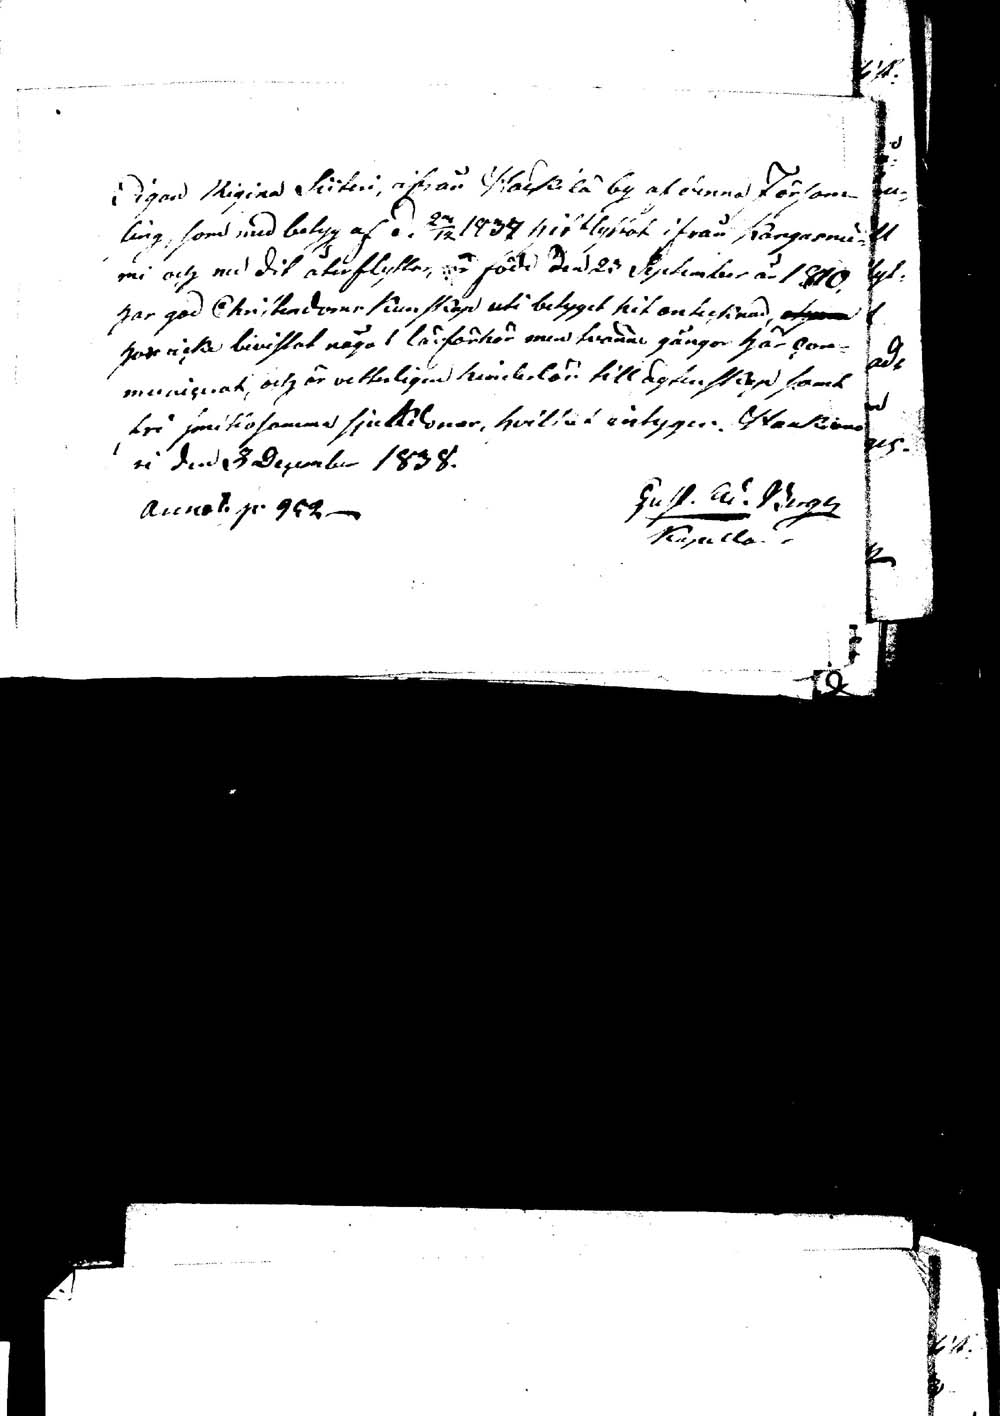 Pigan Regina Siiteri, ifrån Haukila by af denna Försam-
ling, som med betyg af d. 2/12 1837 hit flyttat ifrån Kangasnie-
mi och nu dit återflyttar, är född den 23 September år 1810,
har god Christendoms kunskap uti betyget hit antecknad,
har icke bivistat något läsförhör men tvänne gånger här com-
municerat, och är vetterligen hinderlös till ägtenskap samt
fri smittosamma sjukdomar, hvilket intygar. Haukivuo
ri den 3 December 1838.
Annot. p. 952
Gust. Ad. Bergh
Kapellan